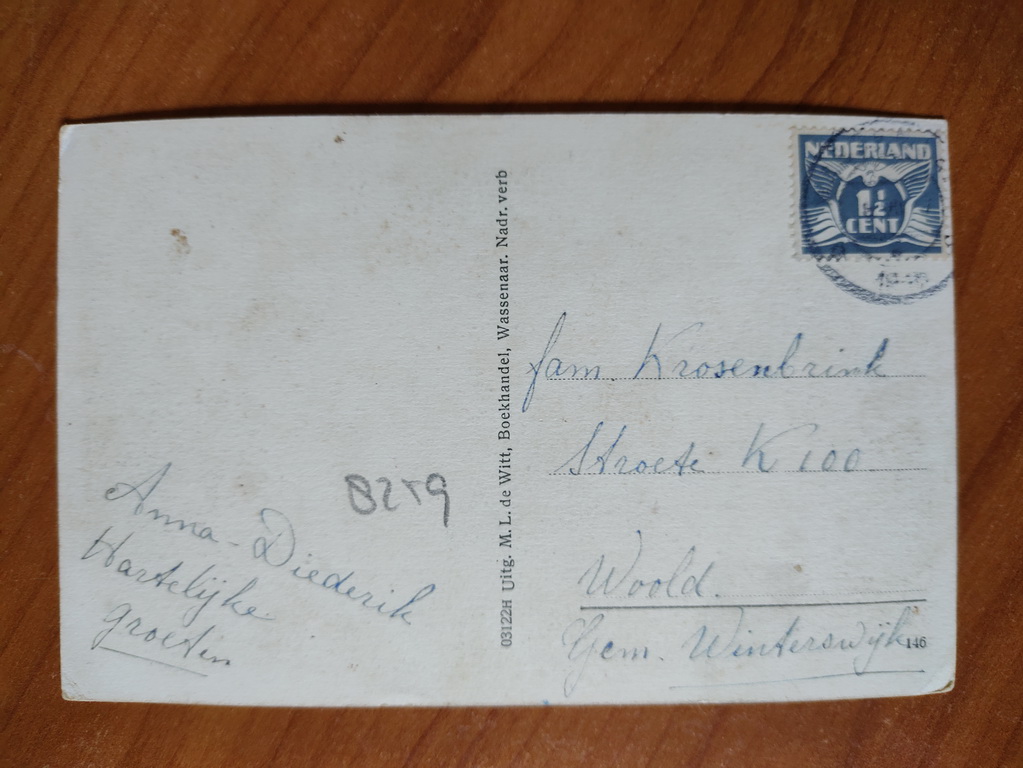 NEDERLAND
1½
CENT
fam. Krosenbrink
Stroete K 100.
Woold.
Gem. Winterswijk
146
03122H Uitg. M. L. de Witt, Boekhandel, Wassenaar. Nadr. verb
8259
Anna-Diederik
Hartelijke
groeten